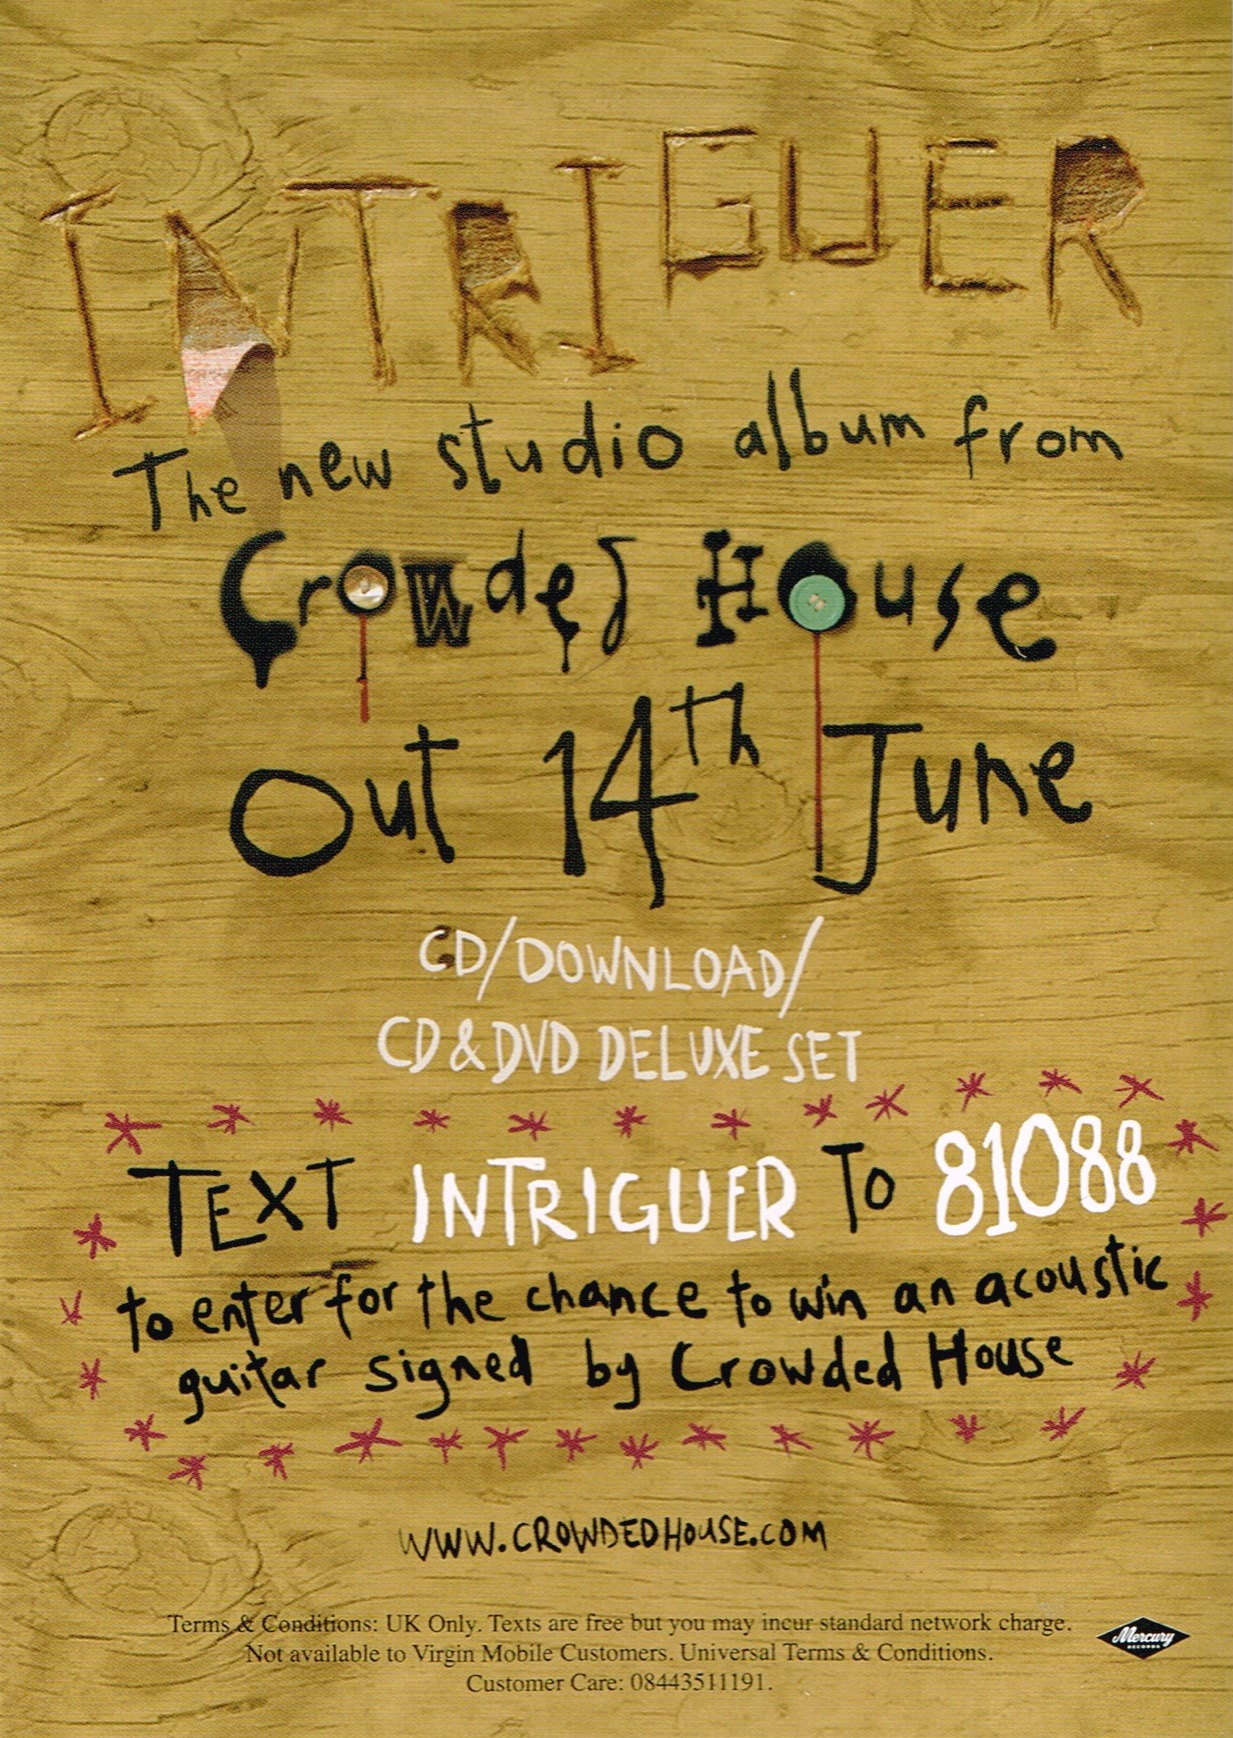 INTRIGUER
The new studio album from
Crowded House
Out 14th June
CD/DOWNLOAD/
CD & DVD DELUXE SET
TEXT INTRIGUER TO 81088
to enter for the chance to win an acoustic
guitar signed by Crowded House
WWW.CROWDEDHOUSE.COM
Terms & Conditions: UK Only. Texts are free but you may incur standard network charge.
Not available to Virgin Mobile Customers. Universal Terms & Conditions.
Customer Care: 08443511191.
Mercury
RECORDS